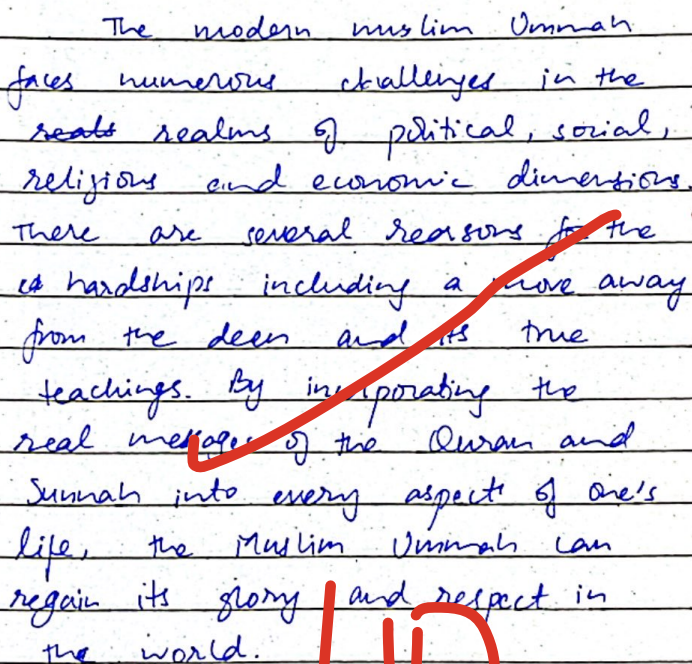 The modern muslim Ummah
faces numerous challenges in the
realms of political, social,
religious and economic dimensions.
There are several reasons for the
hardships including a move away
from the deen and its true
teachings. By incorporating the
real messages of the Quran and
Sunnah into every aspect of one's
life, the Muslim Ummah can
regain its glory and respect in
the world.